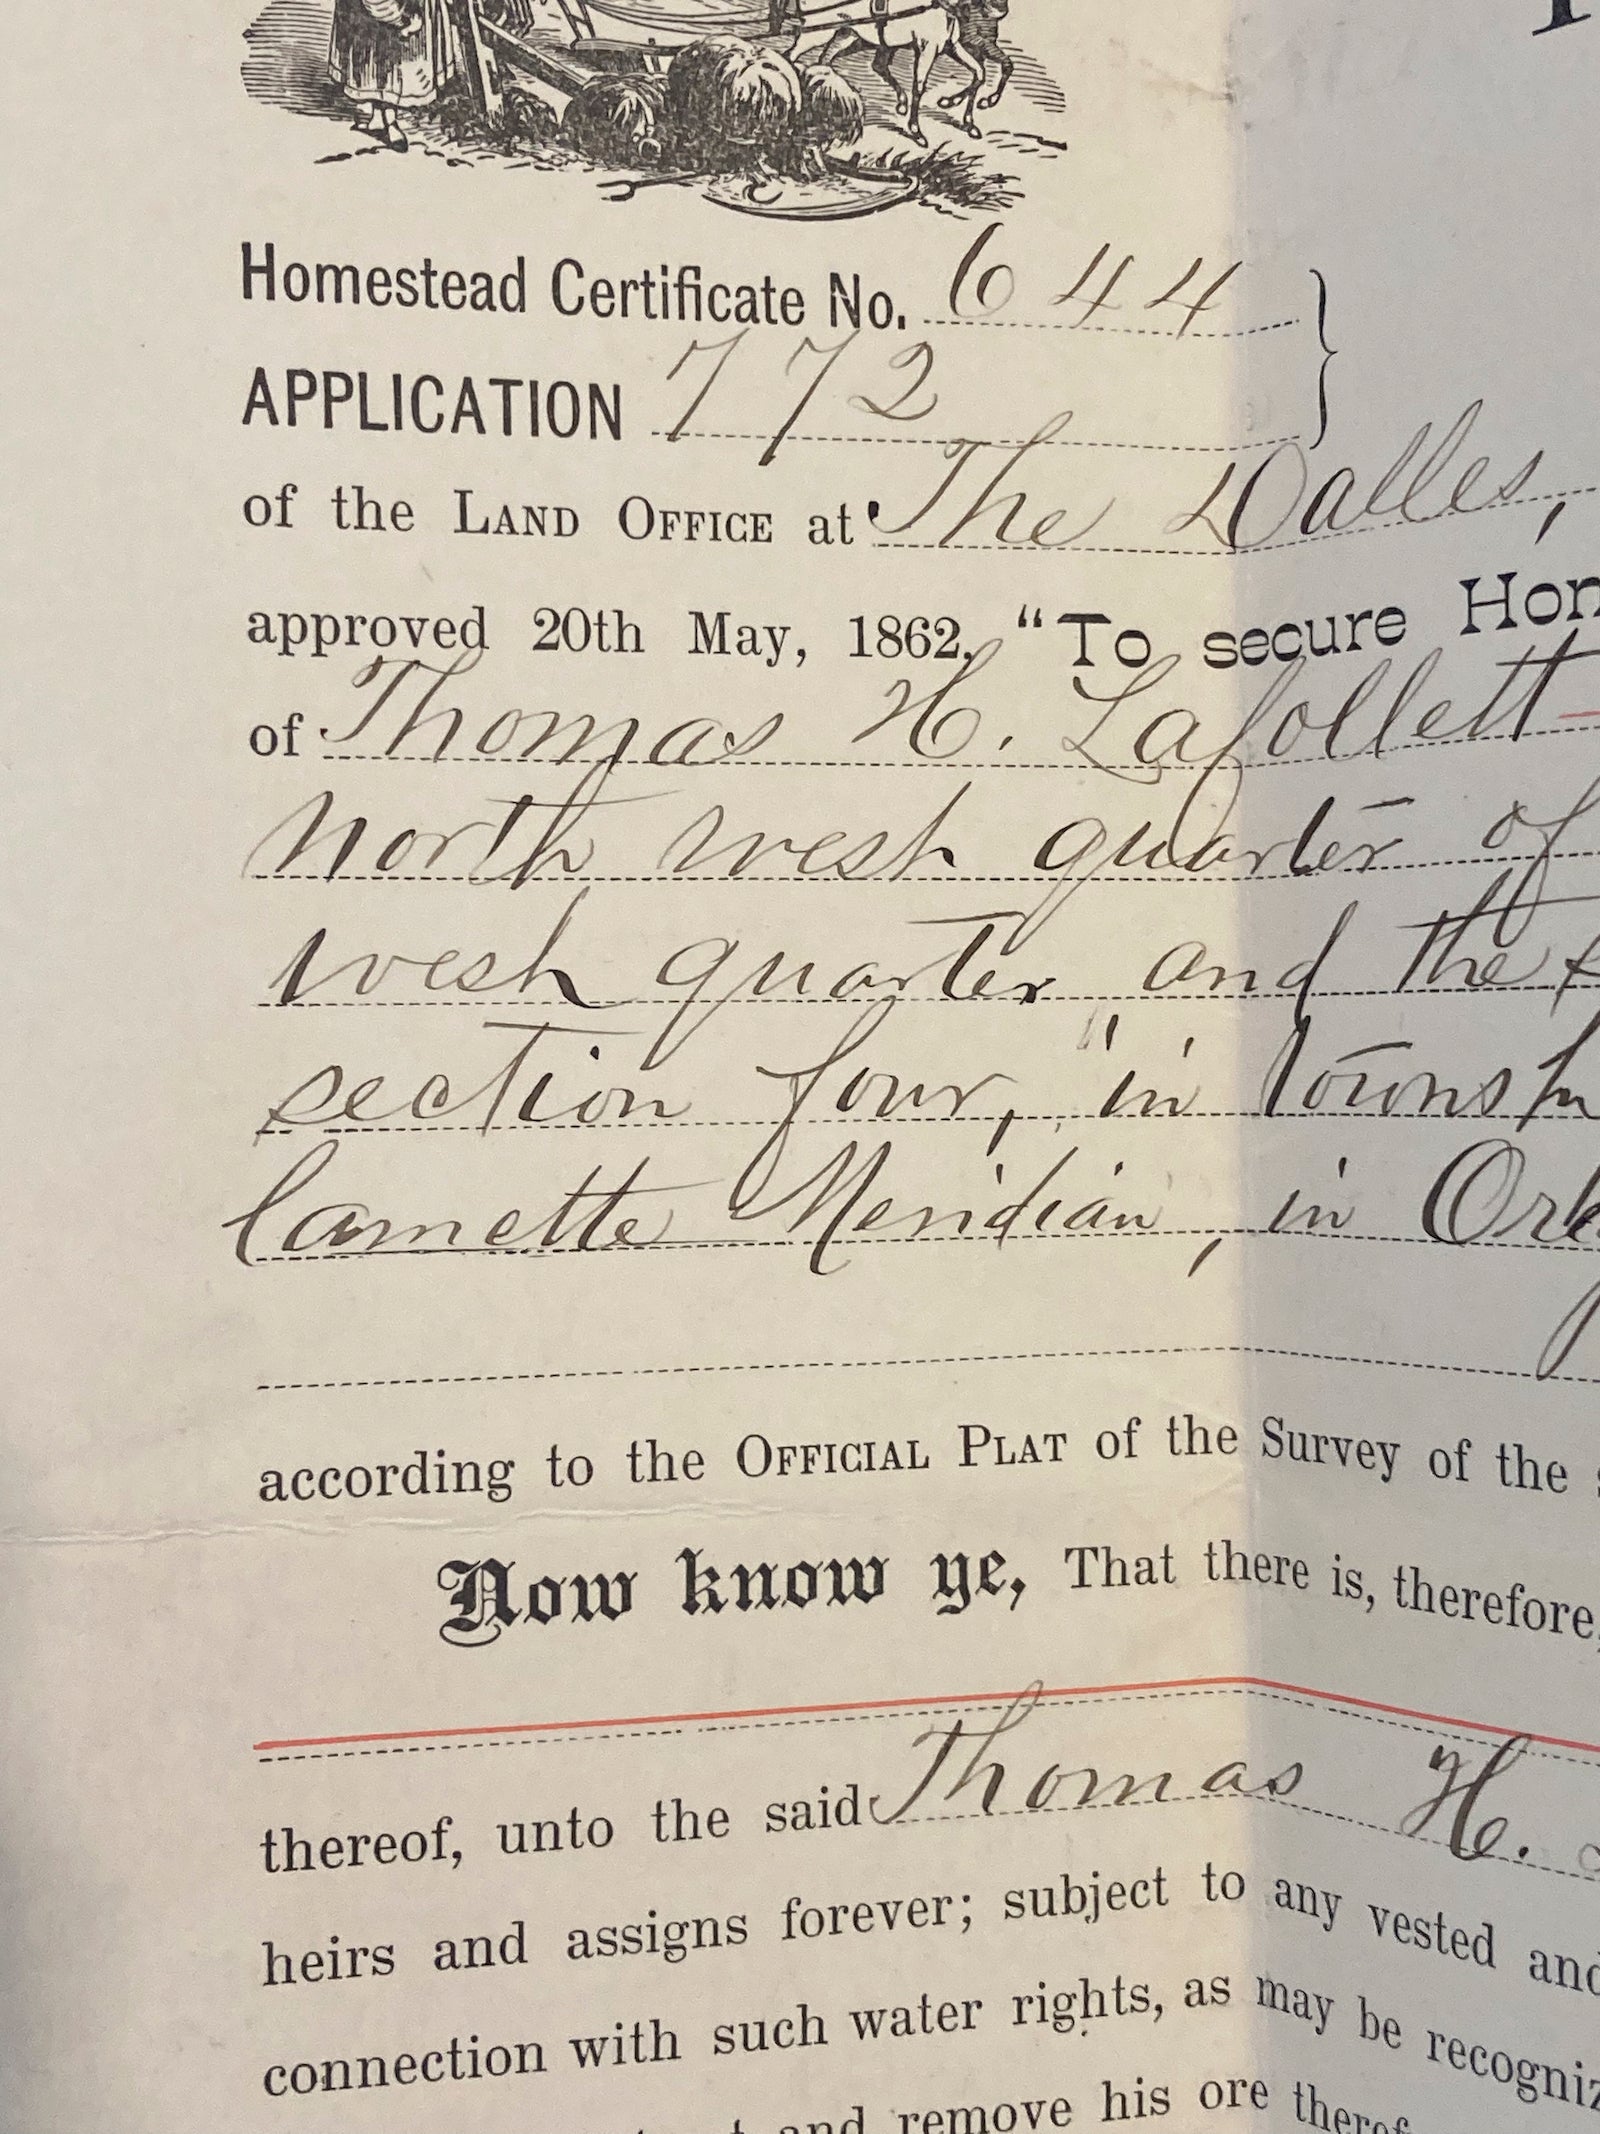 Homestead Certificate No. 644
APPLICATION 772
of the LAND OFFICE at The Dalles,
approved 20th May, 1862, “To secure Hom
of Thomas H. Lafollett
north west quarter of
west quarter and the
section four, in townsh
lamette Meridian, in Or
according to the OFFICIAL PLAT of the Survey of the s
Now know ye, That there is, therefore,
thereof, unto the said Thomas H.
heirs and assigns forever; subject to any vested and
connection with such water rights, as may be recogniz
and remove his ore theref